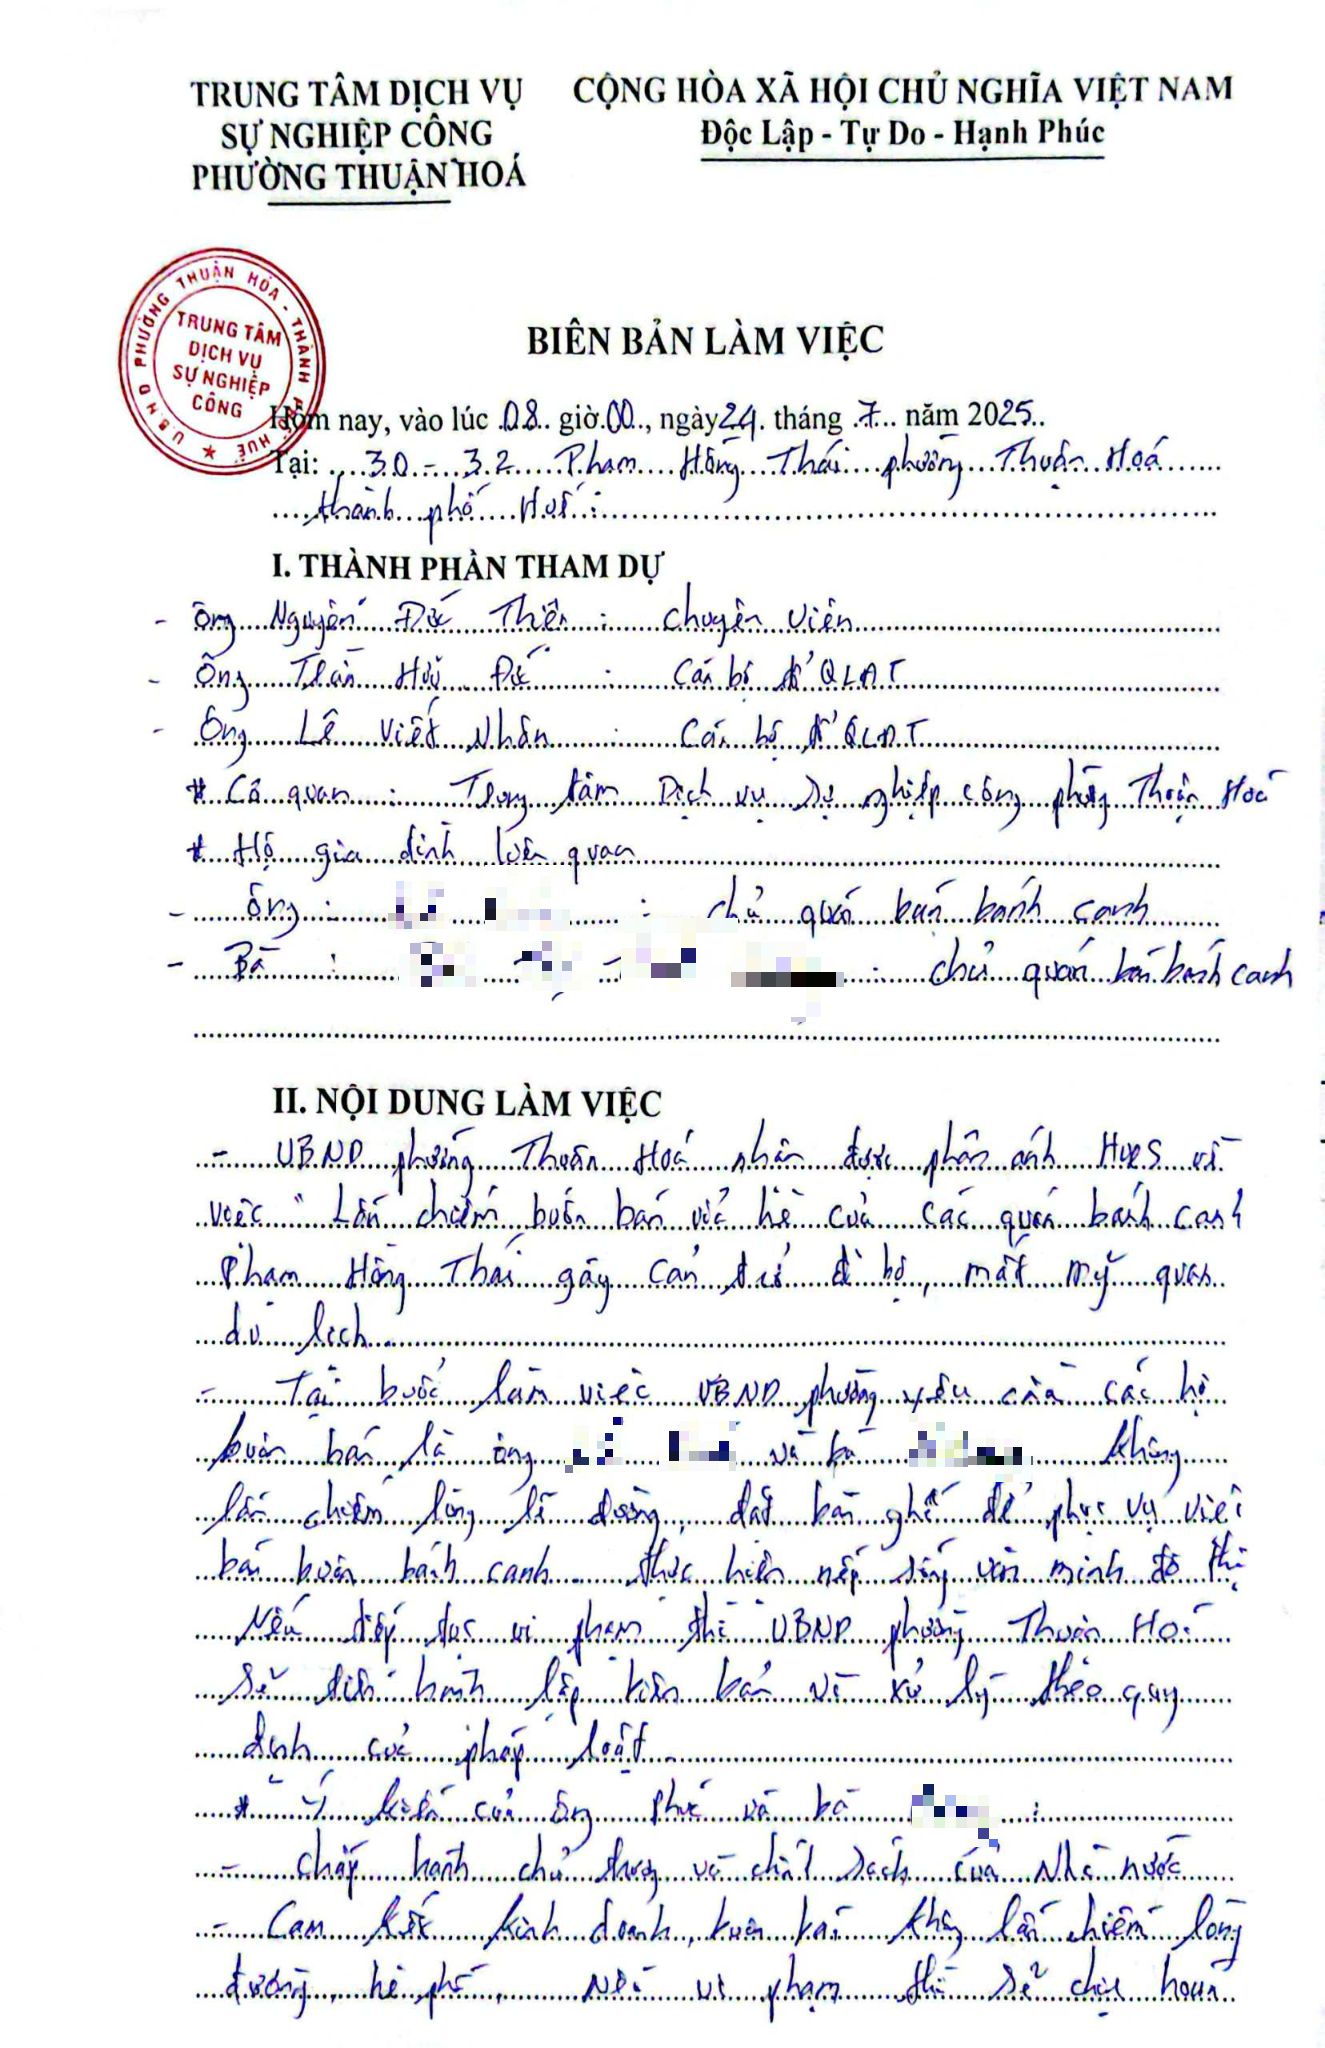 TRUNG TÂM DỊCH VỤ
SỰ NGHIỆP CÔNG
PHƯỜNG THUẬN HOÁ
CỘNG HÒA XÃ HỘI CHỦ NGHĨA VIỆT NAM
Độc Lập - Tự Do - Hạnh Phúc
U.B.N.D PHƯỜNG THUẬN HÓA - THÀNH PHỐ HUẾ
TRUNG TÂM
DỊCH VỤ
SỰ NGHIỆP
CÔNG
BIÊN BẢN LÀM VIỆC
Hôm nay, vào lúc 08 giờ 00, ngày 24 tháng 7 năm 2025
Tại: 30 - 32 Phạm Hồng Thái phường Thuận Hoá
thành phố Huế:
I. THÀNH PHẦN THAM DỰ
- Ông Nguyễn Đức Thiện : Chuyên Viên
- Ông Trần Hữu Đức : Cán bộ QLĐT
- Ông Lê Viết Nhân : Cán bộ QLĐT
* Cơ quan : Trung tâm Dịch vụ Sự nghiệp công phường Thuận Hoá
* Hộ gia đình liên quan
- ông : : chủ quán bán bánh canh
- Bà : : chủ quán bán bánh canh
II. NỘI DUNG LÀM VIỆC
- UBND phường Thuận Hoá nhận được phản ánh HueS về
việc "Lấn chiếm buôn bán vỉa hè của các quán bánh canh
Phạm Hồng Thái gây cản trở đi bộ, mất mỹ quan
du lịch
- Tại buổi làm việc UBND phường yêu cầu các hộ
buôn bán là ông và bà không
lấn chiếm lòng lề đường, đặt bàn ghế để phục vụ việc
bán buôn bánh canh thực hiện nếp sống văn minh đô thị
Nếu tiếp tục vi phạm thì UBND phường Thuận Hoá
sẽ tiến hành lập biên bản và xử lý theo quy
định của pháp luật
* Ý kiến của ông Phú và bà :
- chấp hành chủ trương và chính sách của Nhà nước
- Cam kết kinh doanh, buôn bán không lấn chiếm lòng
đường, hè phố, Nếu vi phạm thì sẽ chịu hoàn